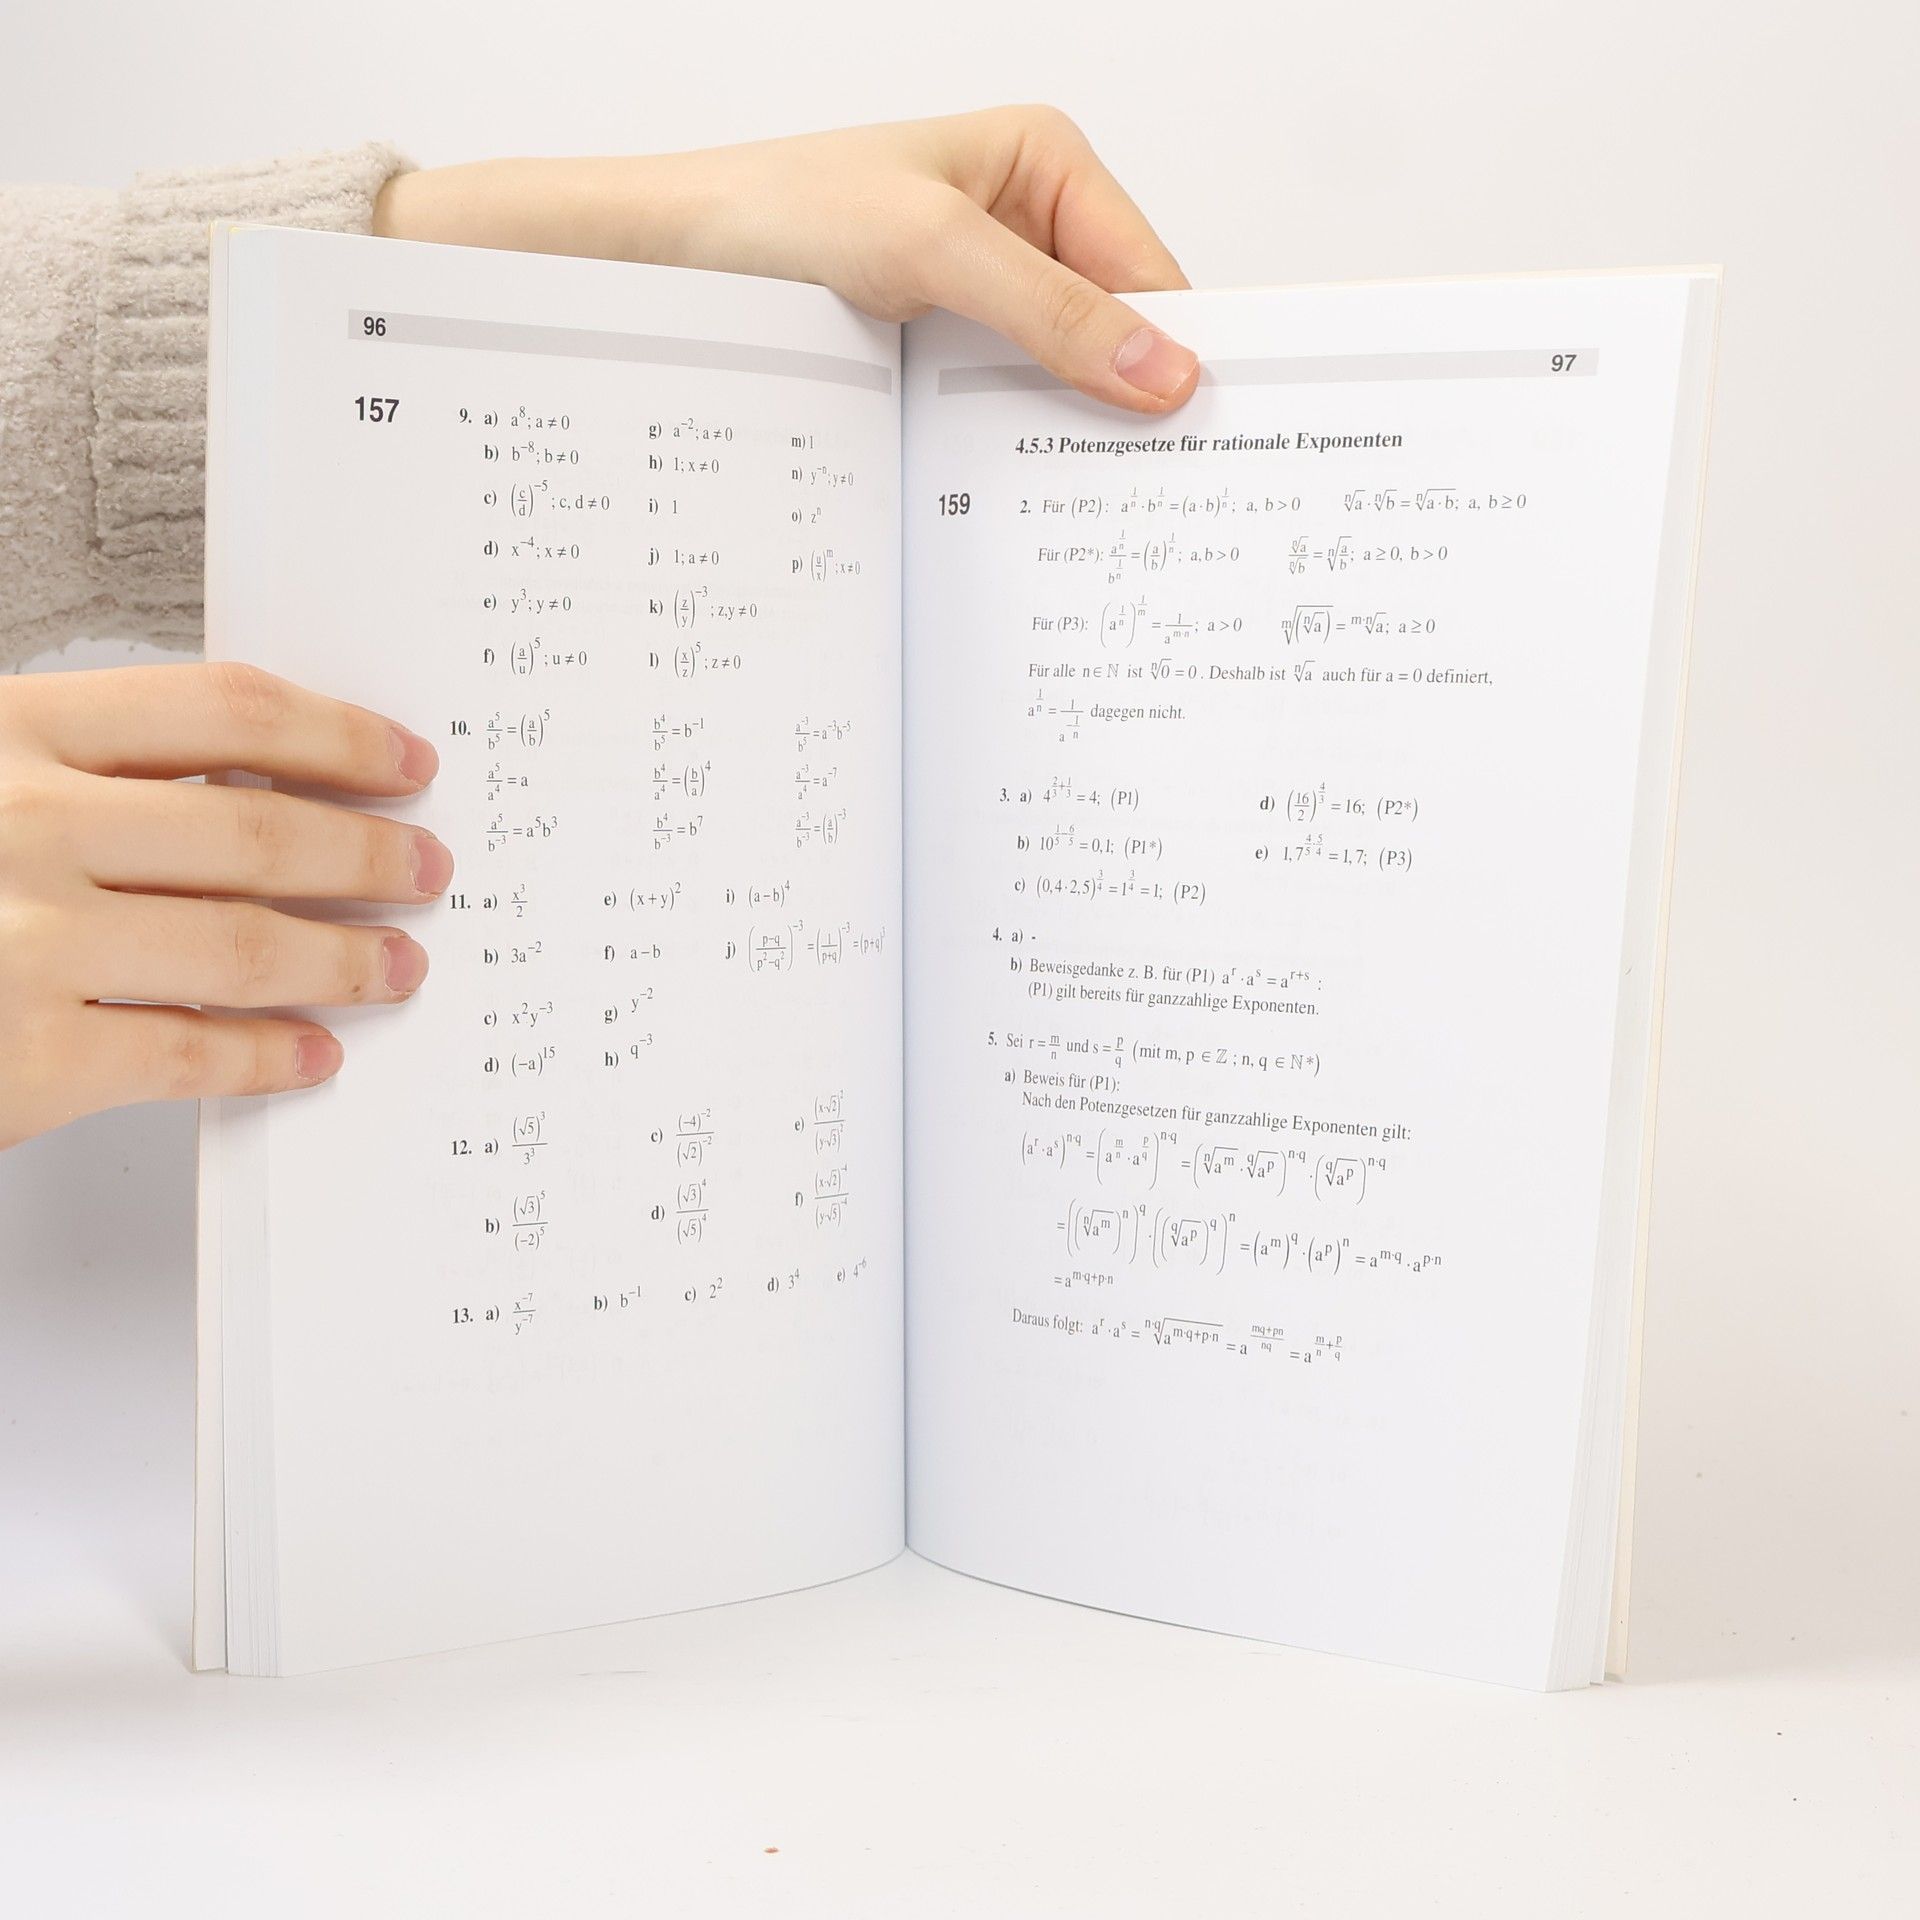 96
157
9. a) a⁸; a ≠ 0 g) a⁻²; a ≠ 0 m) 1
b) b⁻⁸; b ≠ 0 h) 1; x ≠ 0 n) y⁻ⁿ; y ≠ 0
c) (c/d)⁻⁵; c, d ≠ 0 i) 1 o) zⁿ
d) x⁻⁴; x ≠ 0 j) 1; a ≠ 0 p) (u/x)ᵐ; x ≠ 0
e) y³; y ≠ 0 k) (z/y)⁻³; z,y ≠ 0
f) (a/u)⁵; u ≠ 0 l) (x/z)⁵; z ≠ 0
10. a⁵/b⁵ = (a/b)⁵ b⁴/b⁵ = b⁻¹ a⁻³/b⁵ = a⁻³b⁻⁵
a⁵/a⁴ = a b⁴/a⁴ = (b/a)⁴ a⁻³/a⁴ = a⁻⁷
a⁵/b⁻³ = a⁵b³ b⁴/b⁻³ = b⁷ a⁻³/b⁻³ = (a/b)⁻³
11. a) x³/2 e) (x + y)² i) (a − b)⁴
b) 3a⁻² f) a − b j) ((p−q)/(p²−q²))⁻³ = (1/(p+q))⁻³ = (p+q)³
c) x²y⁻³ g) y⁻²
d) (−a)¹⁵ h) q⁻³
12. a) (√5)³/3³ c) (−4)⁻²/(√2)⁻² e) (x·√2)²/(y·√3)²
b) (√3)⁵/(−2)⁵ d) (√3)⁴/(√5)⁴ f) (x·√2)⁻⁴/(y·√5)⁻⁴
13. a) x⁻⁷/y⁻⁷ b) b⁻¹ c) 2² d) 3⁴ e) 4⁻⁶
97
4.5.3 Potenzgesetze für rationale Exponenten
159
2. Für (P2): a^(1/n) · b^(1/n) = (a · b)^(1/n); a, b > 0 ⁿ√a · ⁿ√b = ⁿ√(a · b); a, b ≥ 0
Für (P2*): a^(1/n)/b^(1/n) = (a/b)^(1/n); a, b > 0 ⁿ√a/ⁿ√b = ⁿ√(a/b); a ≥ 0, b > 0
Für (P3): (a^(1/n))^(1/m) = 1/a^(m·n); a > 0 ᵐ√(ⁿ√a) = ᵐ·ⁿ√a; a ≥ 0
Für alle n ∈ ℕ ist ⁿ√0 = 0. Deshalb ist ⁿ√a auch für a = 0 definiert,
a^(1/n) = 1/a^(−1/n) dagegen nicht.
3. a) 4^(2/3+1/3) = 4; (P1) d) (16/2)^(4/3) = 16; (P2*)
b) 10^(1/5−6/5) = 0,1; (P1*) e) 1,7^(4/5·5/4) = 1,7; (P3)
c) (0,4 · 2,5)^(3/4) = 1^(3/4) = 1; (P2)
4. a) -
b) Beweisgedanke z. B. für (P1) aʳ · aˢ = aʳ⁺ˢ :
(P1) gilt bereits für ganzzahlige Exponenten.
5. Sei r = m/n und s = p/q (mit m, p ∈ ℤ ; n, q ∈ ℕ*)
a) Beweis für (P1):
Nach den Potenzgesetzen für ganzzahlige Exponenten gilt:
(aʳ · aˢ)^(n·q) = (a^(m/n) · a^(p/q))^(n·q) = (ⁿ√(a^m) · ^q√(a^p))^(n·q) · (^q√(a^p))^(n·q)
= ((ⁿ√(a^m))^n)^q · ((^q√(a^p))^q)^n = (a^m)^q · (a^p)^n = a^(m·q) · a^(p·n)
= a^(m·q+p·n)
Daraus folgt: aʳ · aˢ = ^(n·q)√(a^(m·q+p·n)) = a^((mq+pn)/nq) = a^(m/n+p/q)